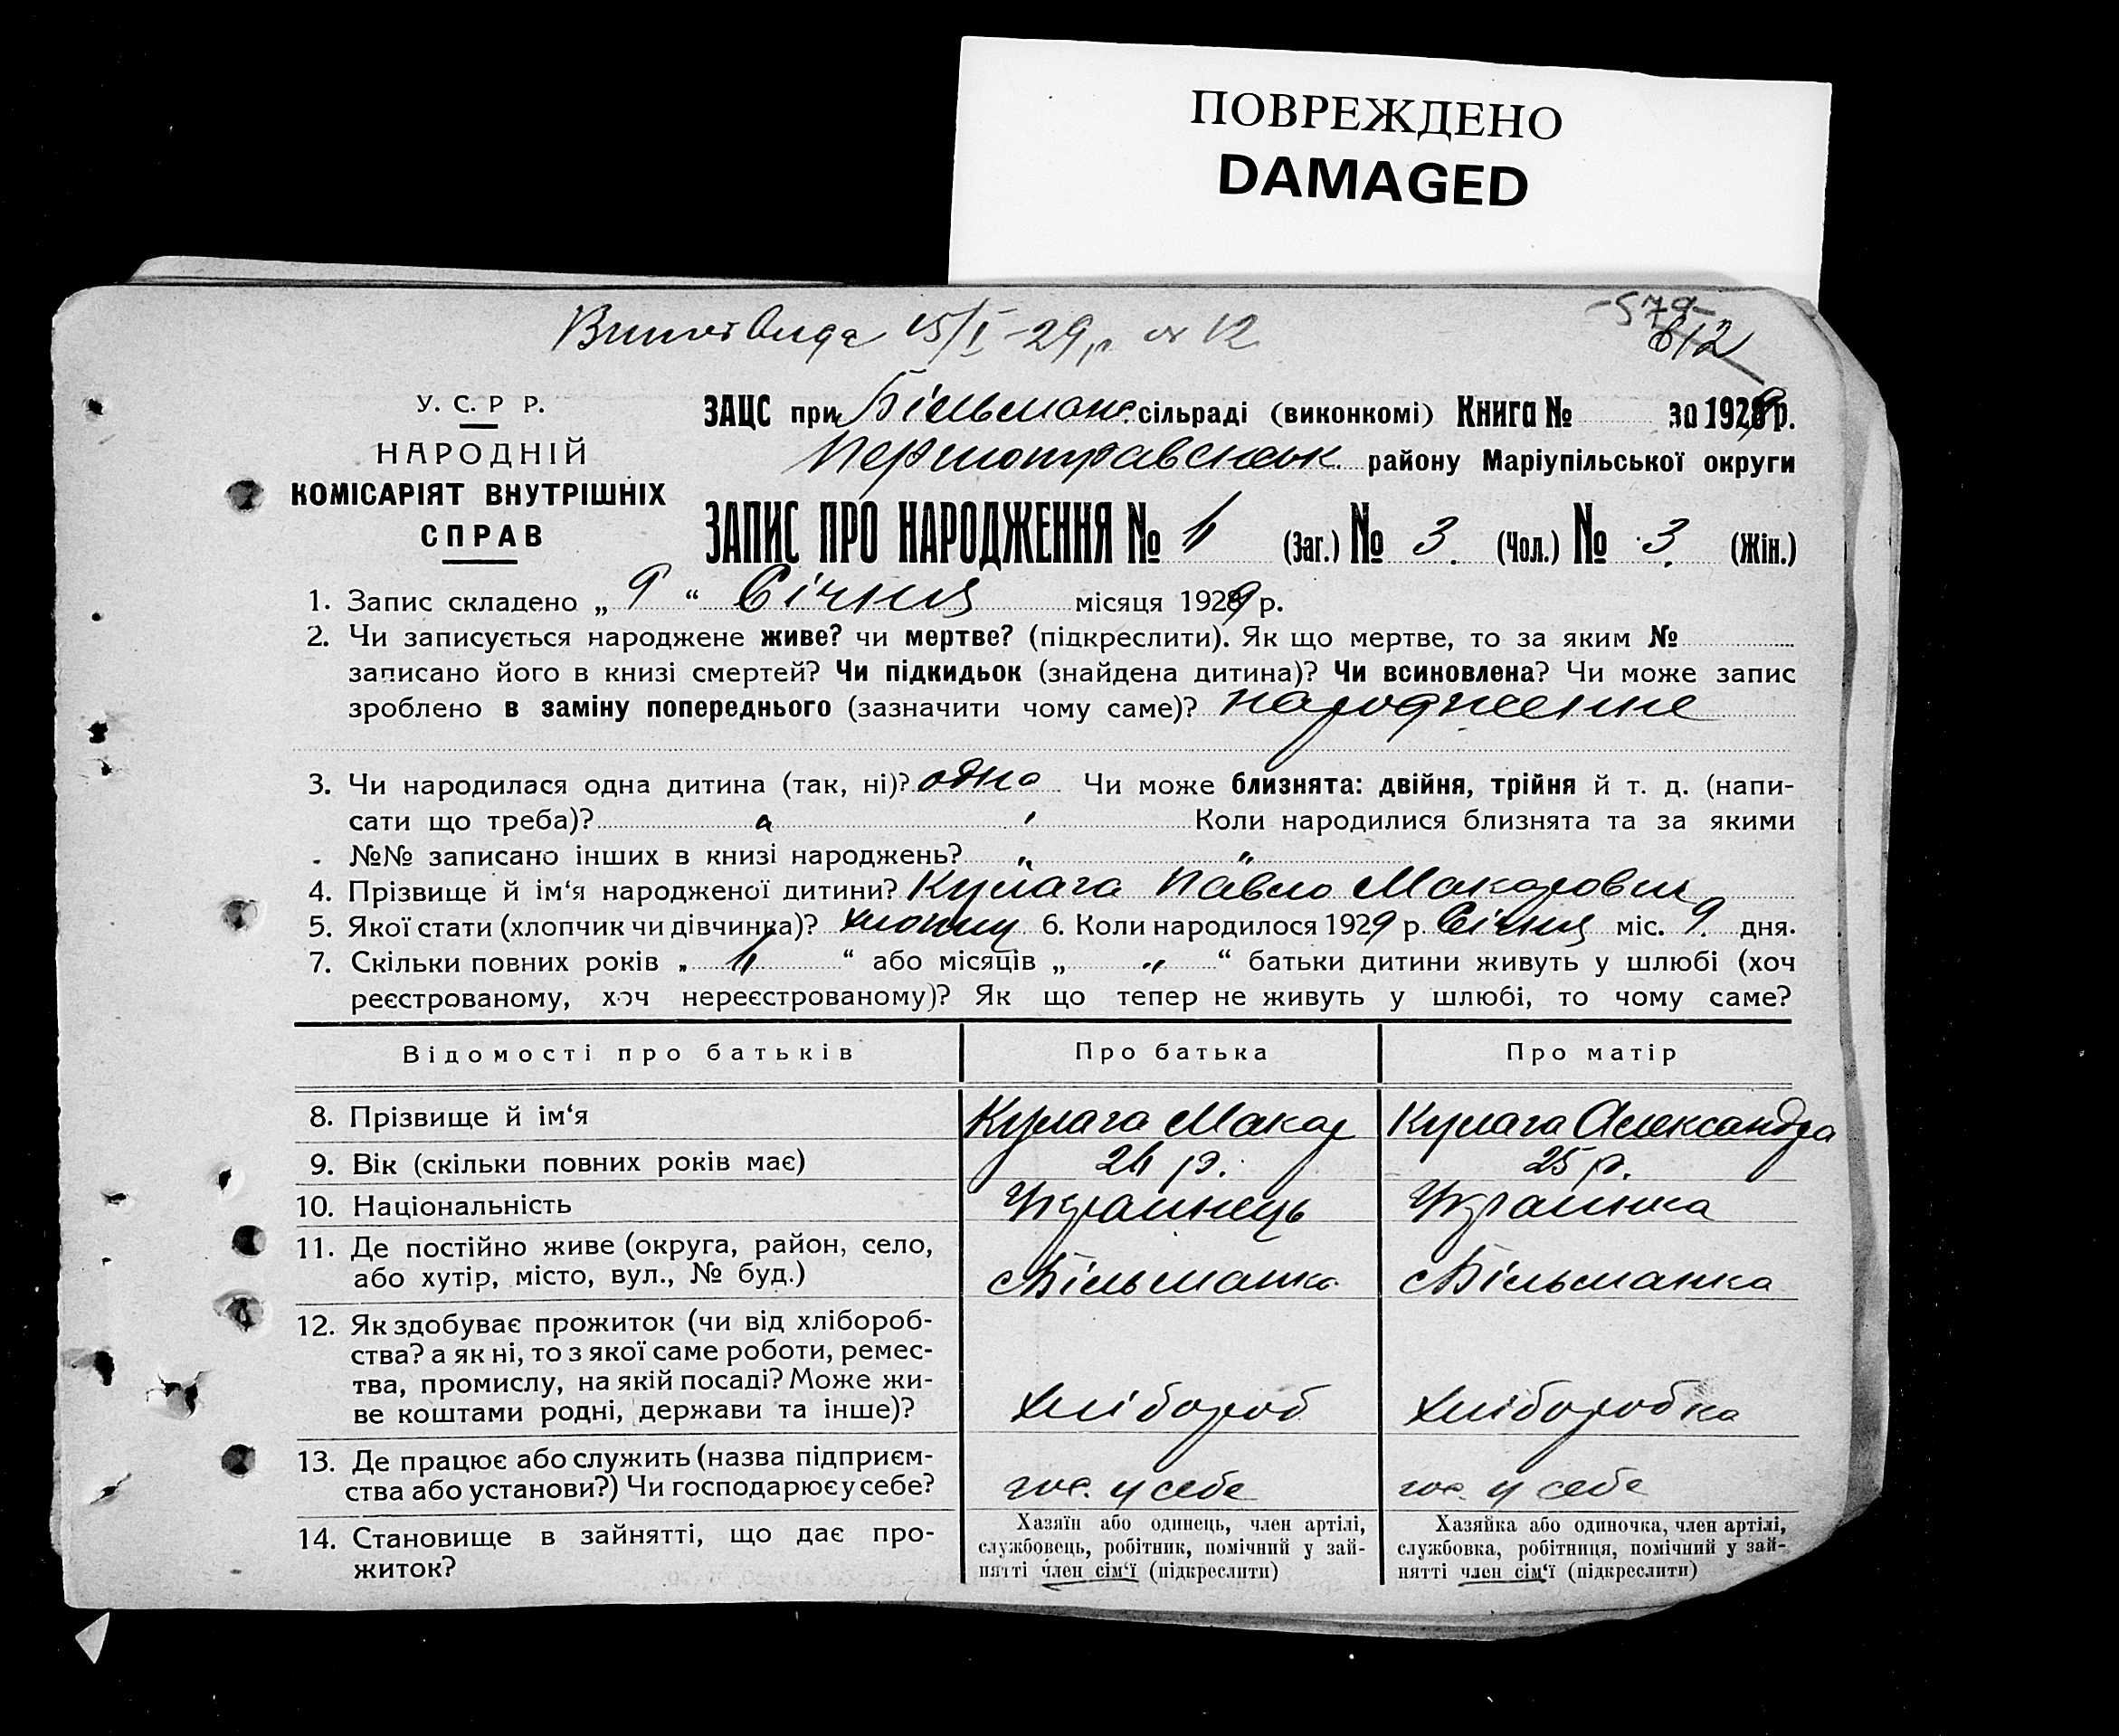 ПОВРЕЖДЕНО
DAMAGED
15/I-29 р. № 12
-579-
612
У. С. Р Р.
НАРОДНІЙ
КОМІСАРІЯТ ВНУТРІШНІХ
СПРАВ
ЗАЦС при Більманс. сільраді (виконкомі) Книга № за 1929 р.
Першотравенськ. району Маріупільської округи
ЗАПИС ПРО НАРОДЖЕННЯ № 4 (Заг.) № 3. (Чол.) № 3. (Жін.)
1. Запис складено „ 9 “ Січня місяця 1929 р.
2. Чи записується народжене живе? чи мертве? (підкреслити). Як що мертве, то за яким №
записано його в книзі смертей? Чи підкидьок (знайдена дитина)? Чи всиновлена? Чи може запис
зроблено в заміну попереднього (зазначити чому саме)? народження
3. Чи народилася одна дитина (так, ні)? одна Чи може близнята: двійня, трійня й т. д. (напи-
сати що треба)? Коли народилися близнята та за якими
№№ записано інших в книзі народжень? „ „
4. Прізвище й ім‘я народженої дитини? Кулага Павло Макарович
5. Якої стати (хлопчик чи дівчинка)? хлопчик 6. Коли народилося 1929 р. Січня міс. 9. дня.
7. Скільки повних років „ 4 “ або місяців „ „ “ батьки дитини живуть у шлюбі (хоч
реєстрованому, хоч нереєстрованому)? Як що тепер не живуть у шлюбі, то чому саме?
Відомості про батьків Про батька Про матір
8. Прізвище й ім‘я Кулага Макар Кулага Александра
9. Вік (скільки повних років має) 24 р. 25 р.
10. Національність Украинець Украинка
11. Де постійно живе (округа, район, село,
або хутір, місто, вул., № буд.) с Більманка с Більманка
12. Як здобуває прожиток (чи від хлібороб-
ства? а як ні, то з якої саме роботи, ремес-
тва, промислу, на якій посаді? Може жи-
ве коштами родні, держави та інше)? хлібороб хліборобка
13. Де працює або служить (назва підприєм-
ства або установи?) Чи господарює у себе? гос. у себе гос. у себе
14. Становище в зайнятті, що дає про-
житок?
Хазяїн або одинець, член артілі,
службовець, робітник, помічний у зай-
нятті член сім‘ї (підкреслити)
Хазяйка або одиночка, член артілі,
службовка, робітниця, помічний у зай-
нятті член сім‘ї (підкреслити)